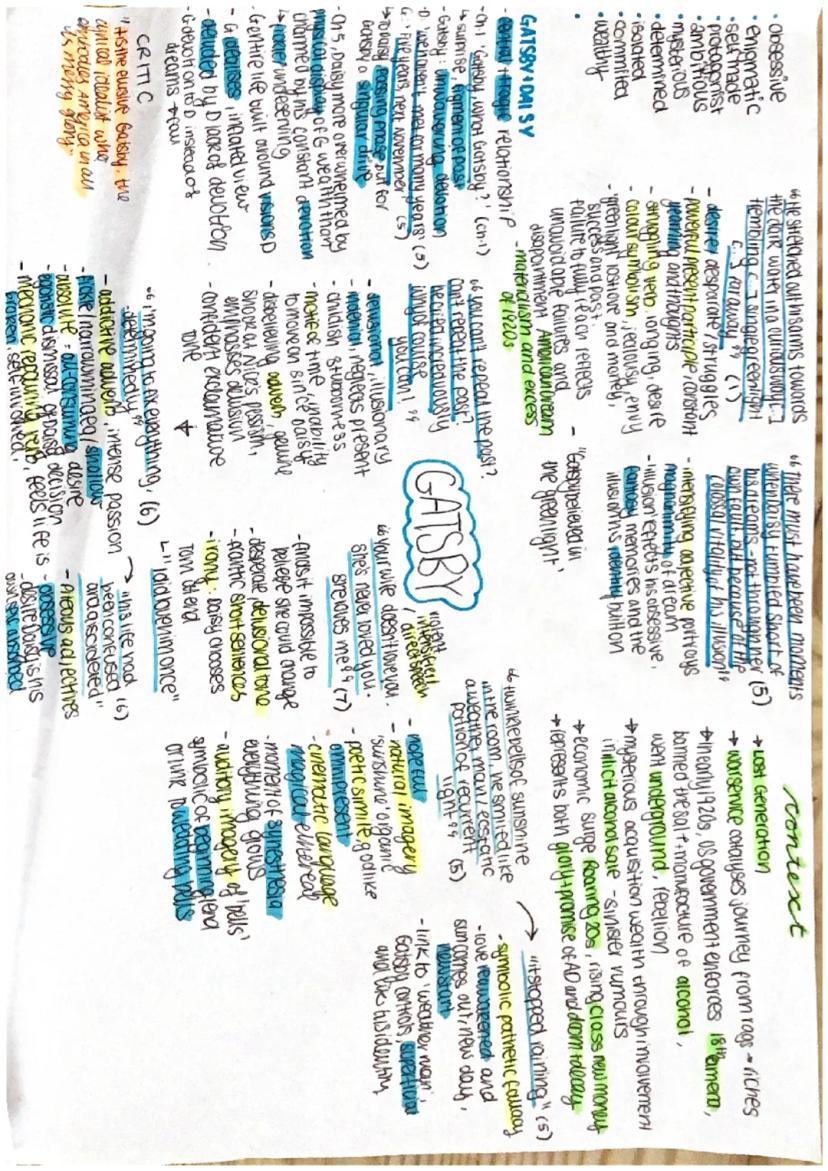 • obsessive
• enigmatic
• self made
• protagonist
• ambitious
• mysterious
• determined
• isolated
• committed
• wealthy
•
"He stretched out his arms towards
the dark water in a curious way [...]
trembling [...] single green light
[...] far away" (1)
- desire, desparate / struggles
- powerful present participle, constant
yearning and thoughts
- struggling verb, longing, desire
- colour symbolism, jealousy, envy
- green light, hostage and money,
success and past.
Failure to fully reach reflects
unavoidable failures and
disappointment American dream
- materialism and excess
of 1920s
- 'Gatsby believed in
the green light'
"There must have been moments
when Daisy tumbled short of
his dreams - not through her
own fault, but because of the
colossal vitality of his illusion" (5)
- intensifying adjective portrays
magnitude of dream
- illusion reflects his obsessive,
fantasy memories and the
illusion his identity built on
context
→ Lost Generation
→ War service catalyses journey from rags → riches
→ In early 1920s, US government enforces 18th amend,
banned the sale + manufacture of alcohol,
went underground, rebellion
→ mysterious acquisition wealth through involvement
in illicit alcohol sale - sinister rumours
→ economic surge Roaring 20s, rising class new money
→ represents both glory + promise of AD and doom + decay
GATSBY + DAISY
- central + tragic relationship
- Ch 1 'Gatsby, what Gatsby?' (ch 1)
↳ surprise, figment of past
- Gatsby: unwavering devotion
D: 'we haven't met for many years' (5)
G: 'Five years next November' (5)
↳ Daisy passing phase but for
Gatsby a singular drive
- Ch 5, Daisy more overwhelmed by
physical display of G wealth than
charmed by his constant devotion
↳ undeserving
- G entire life built around visions D
- G idealises inflated view
- deluded by D lacked devotion
- G devotion to D instead of
dreams → ruin
CRITIC
"This elusive Gatsby, the
cynical idealist who
embodies America in all
its messy glory"
"You can't repeat the past?
Can't repeat the past?
he cried incredulously
why of course
you can!"
- delusional, illusionary
mention, neglects present
- childish stubbornness
- motif of time, inability
to move on since Daisy
- disbelieving adverb, genuine
shock at Nick's pessism,
emphasises delusion
- confident exclamative
tone
GATSBY
"Your wife doesn't love you.
She's never loved you.
She loves me" (7)
violent
intensifier
/ direct speech
- finds it impossible to
believe she could change
- desperate delusional tone
- frantic short sentences
- irony: Daisy chooses
Tom at end
↳ "I did love him once"
"twinkle bells of sunshine
in the room, he smiled like
a weather man / ecstatic
patron of recurrent
light" (5)
- hopeful
- natural imagery
'sunshine' organic
- poetic simile, godlike
omnipresent
- cinematic language
magical ethereal
- moment of synesthesia
everything glows
- auditory imagery of 'bells'
symbolic of beginning + end
or link D wedding bells
→ "it stopped raining" (5)
- symbolic pathetic fallacy
- love reawakened and
sun comes out, new day,
new start
- link to 'weather man',
Gatsby controls, superficial
and like his identity
"I'm going to fix everything, (6)
determinedly"
- addictive adverb, intense passion
- fickle / narrowminded / shallow
- absolute = all-consuming desire
- egoistic dismissal of Daisy decision
- mechanic repairing verb, feels life is
broken, self involved.
→ "his life had
been confused
and disordered" (6)
- Arduous adjectives
- obsessive
- desire Daisy is his